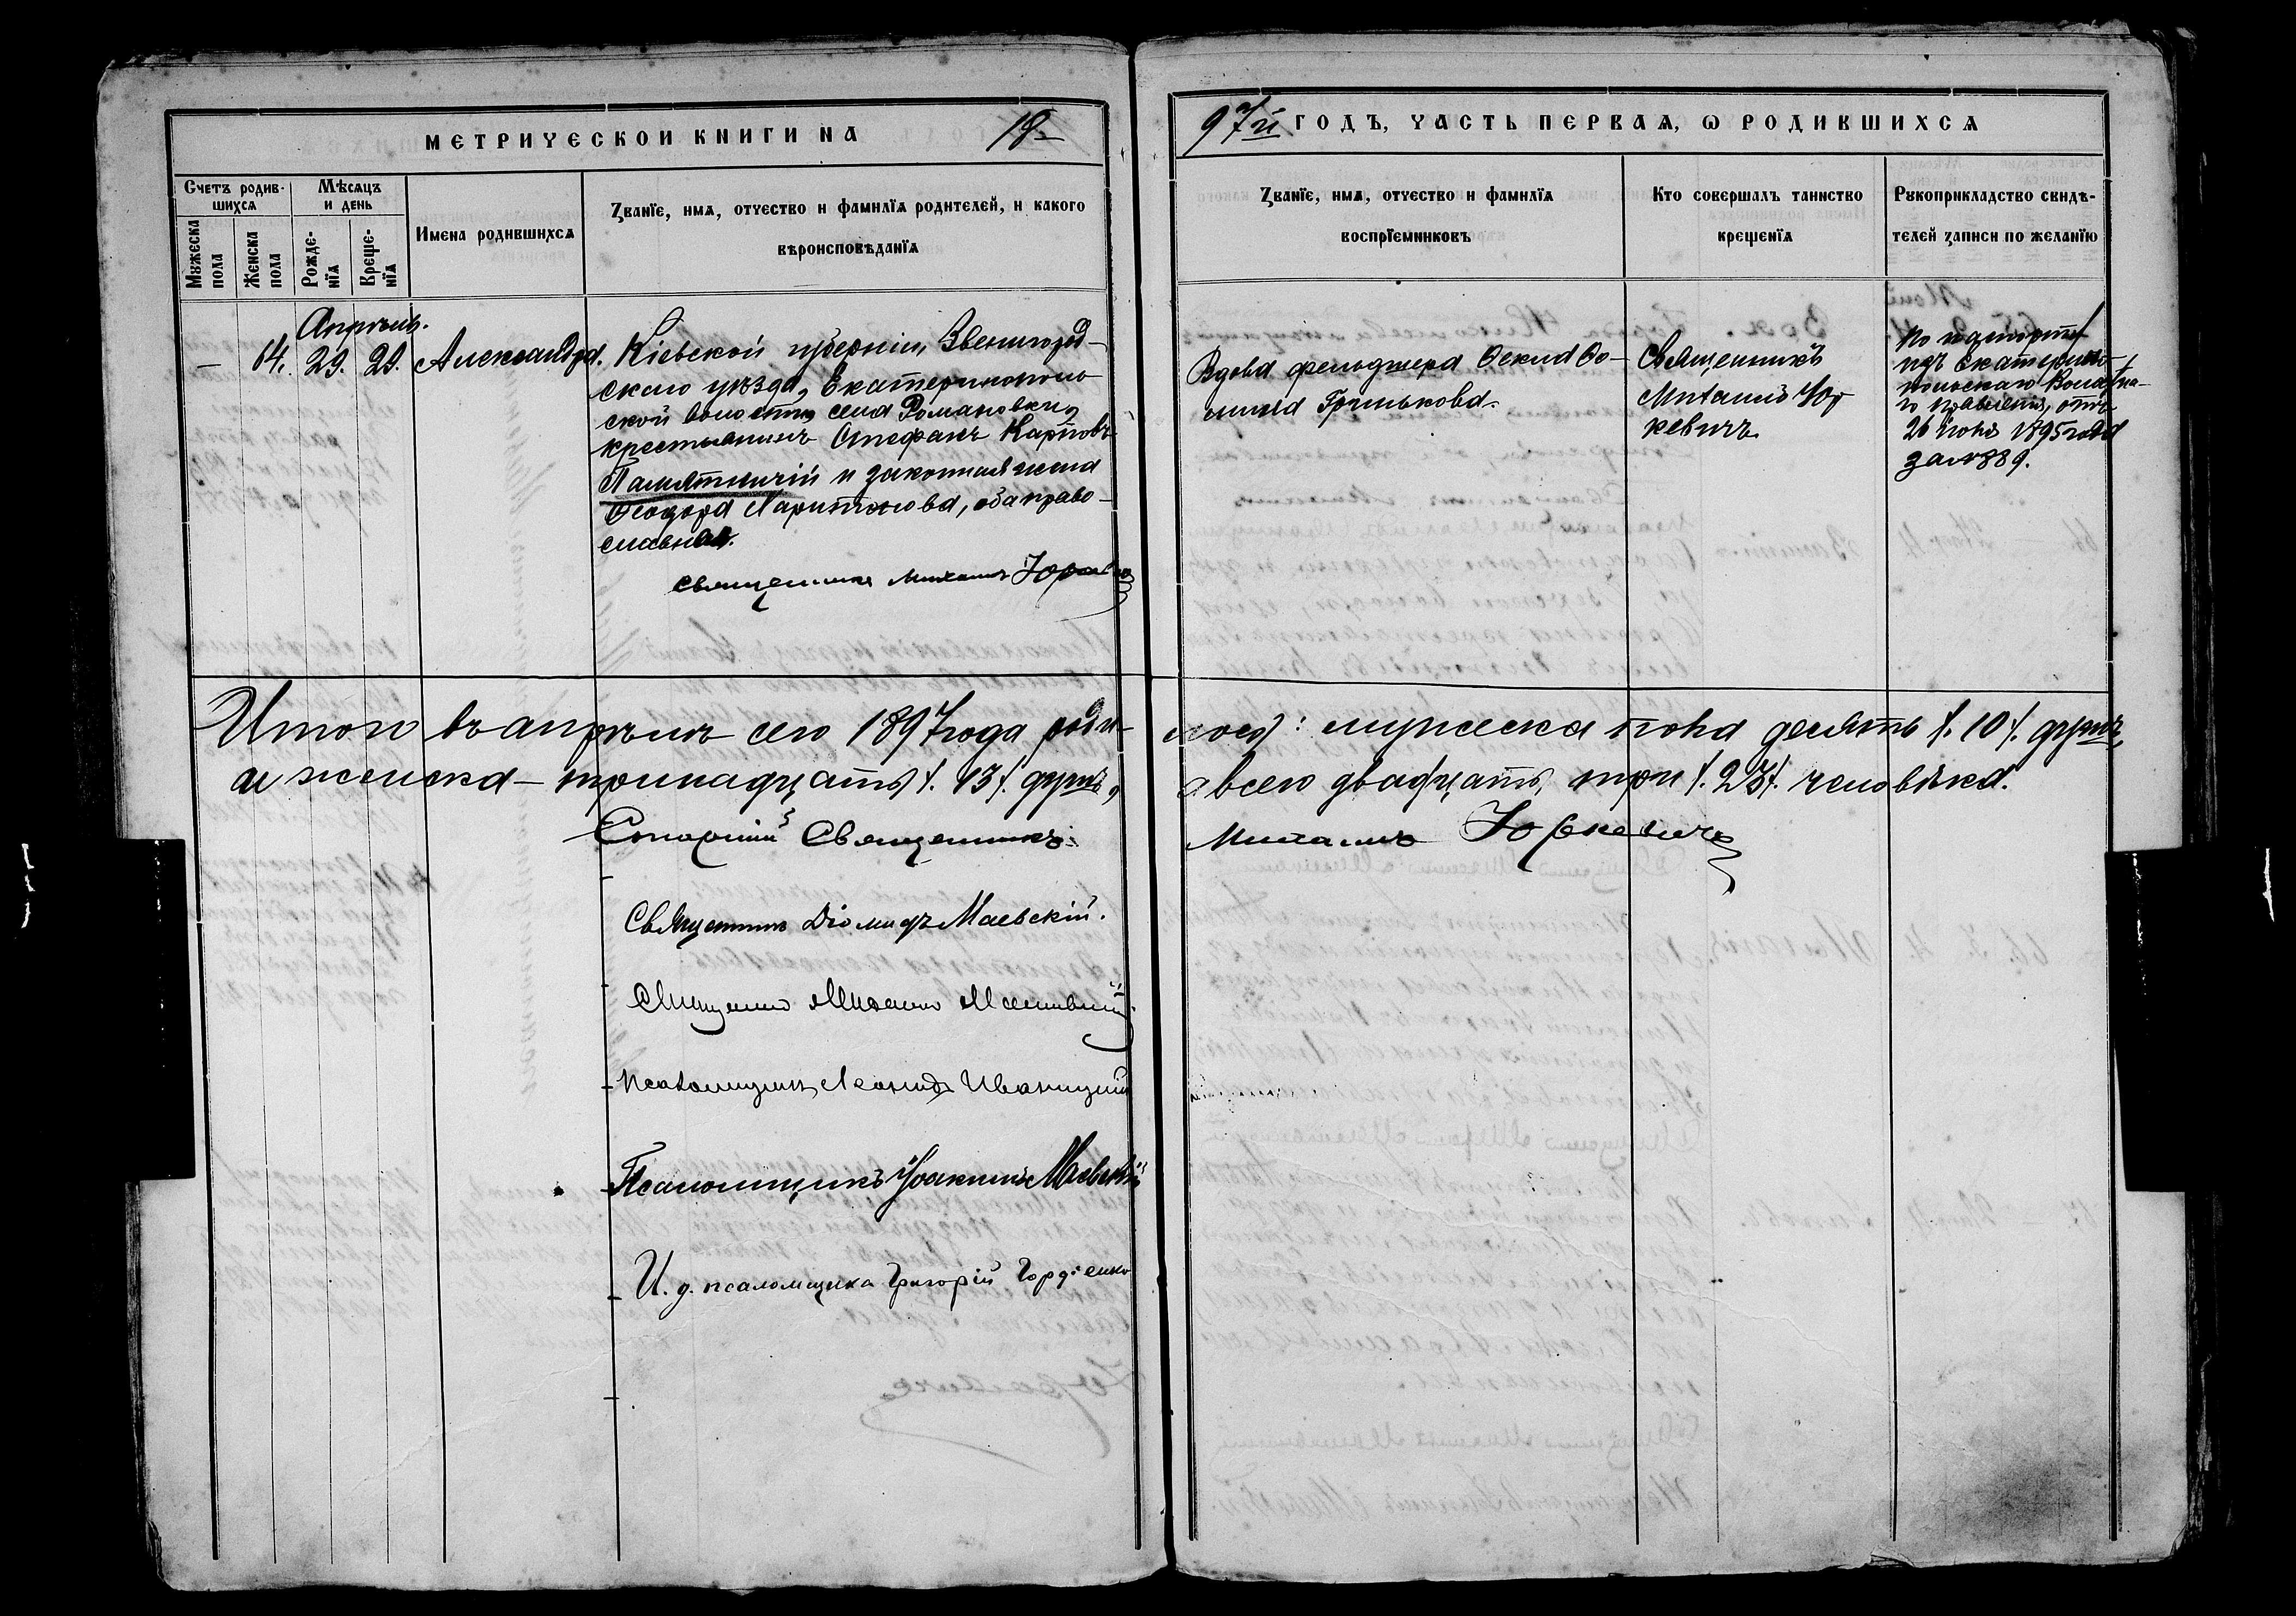 МЕТРИЧЕСКОЙ КНИГИ НА 18
97й ГОДЪ, ЧАСТЬ ПЕРВАЯ, Ѡ РОДИВШИХСЯ
Счетъ родив-
шихся
Мѣсяцъ
и день
Мужеска
пола
Женска
пола
Рожде-
нїя
Креще-
нїя
Имена родившихся
Званїе, имя, отчество и фамилїя родителей, и какого
вѣроисповѣданїя
Званїе, имя, отчество и фамилїя
воспрїемниковъ
Кто совершалъ таинство
крещенїя
Рукоприкладство свидѣ-
телей записи по желанїю
Апрѣль.
— 64. 29. 29. Александра.
Кіевской губерніи, Звенигород-
скаго уѣзда, Екатеринополь
ской волости, села Романовки,
крестьянинъ Стефанъ Карповъ
Памятничій и законная жена
Ѳеодора Харитонова, оба право-
славные.
Священникъ Михаилъ Юркевичъ
Вдова фельдшера Ѳекла Ѳо-
мина Гринькова.
Священникъ
Михаилъ Юр
кевичъ
По паспорту
изъ Екатерино-
польскаго Волостна-
го правленія, отъ
26 1895 года
за № 889.
Итого въ апрѣлѣ сего 1897 года роди-
лось: мужеска пола десять /. 10 /. душъ,
а женска — тринадцать /. 13 /. душъ,
а всего двадцать три /. 23 /. человѣка.
Старшій Священникъ
Михаилъ Юркевичъ
Священникъ Діомидъ Маевскій.
Священникъ Михаилъ
Псаломщикъ Леонидъ Иваницкій
Псаломщикъ Іоакимъ Маевскій
И. д. псаломщика Григорій Гордіенко